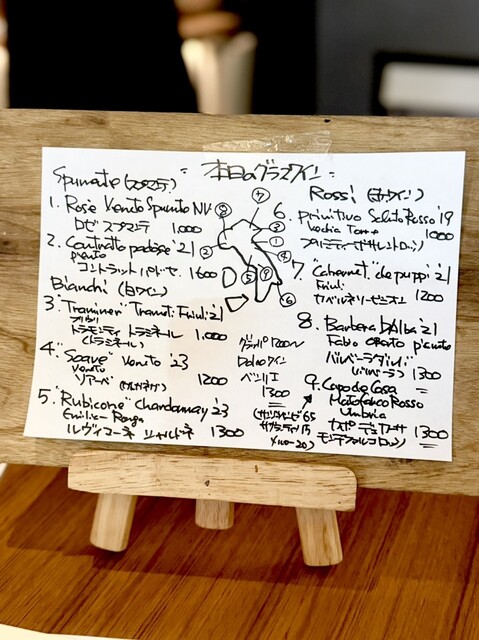 本日のグラスワイン
Spumante (スプマンテ)
1. Rose Veneto Spumante NV
ロゼ スプマンテ 1.000
2. Contratto padose '21
piemonte
コントラット パドーゼ 1600
Bianchi (白ワイン)
3. "Traminer" Tramonti Friuli '21
フリウリ
トラモンティ トラミネール 1.000
(トラミネール)
4. "Soave" Veneto '23
Veneto
ソアーベ (ガルガネガ) 1200
5. "Rubicone" Chardonnay '23
Emilia-Romagna
ルヴィコーネ シャルドネ 1300
Rossi (赤ワイン)
6. primitivo Salento Rosso '19
1000
7. "Cabernet" de puppi '21
Friuli
カベルネソーヴィニヨン 1200
8. Barbera D'Alba '21
Fabio piemonte
バルベーラダルバ
(バルベーラ) 1300
9. Capo de Casa
Montefalco Rosso
Umbria
カポ デ カーサ 1300
モンテファルコ ロッソ
グラッパ 1200~
1300
(サンジョベーゼ 65
サグランティーノ 15
メルロー 20)